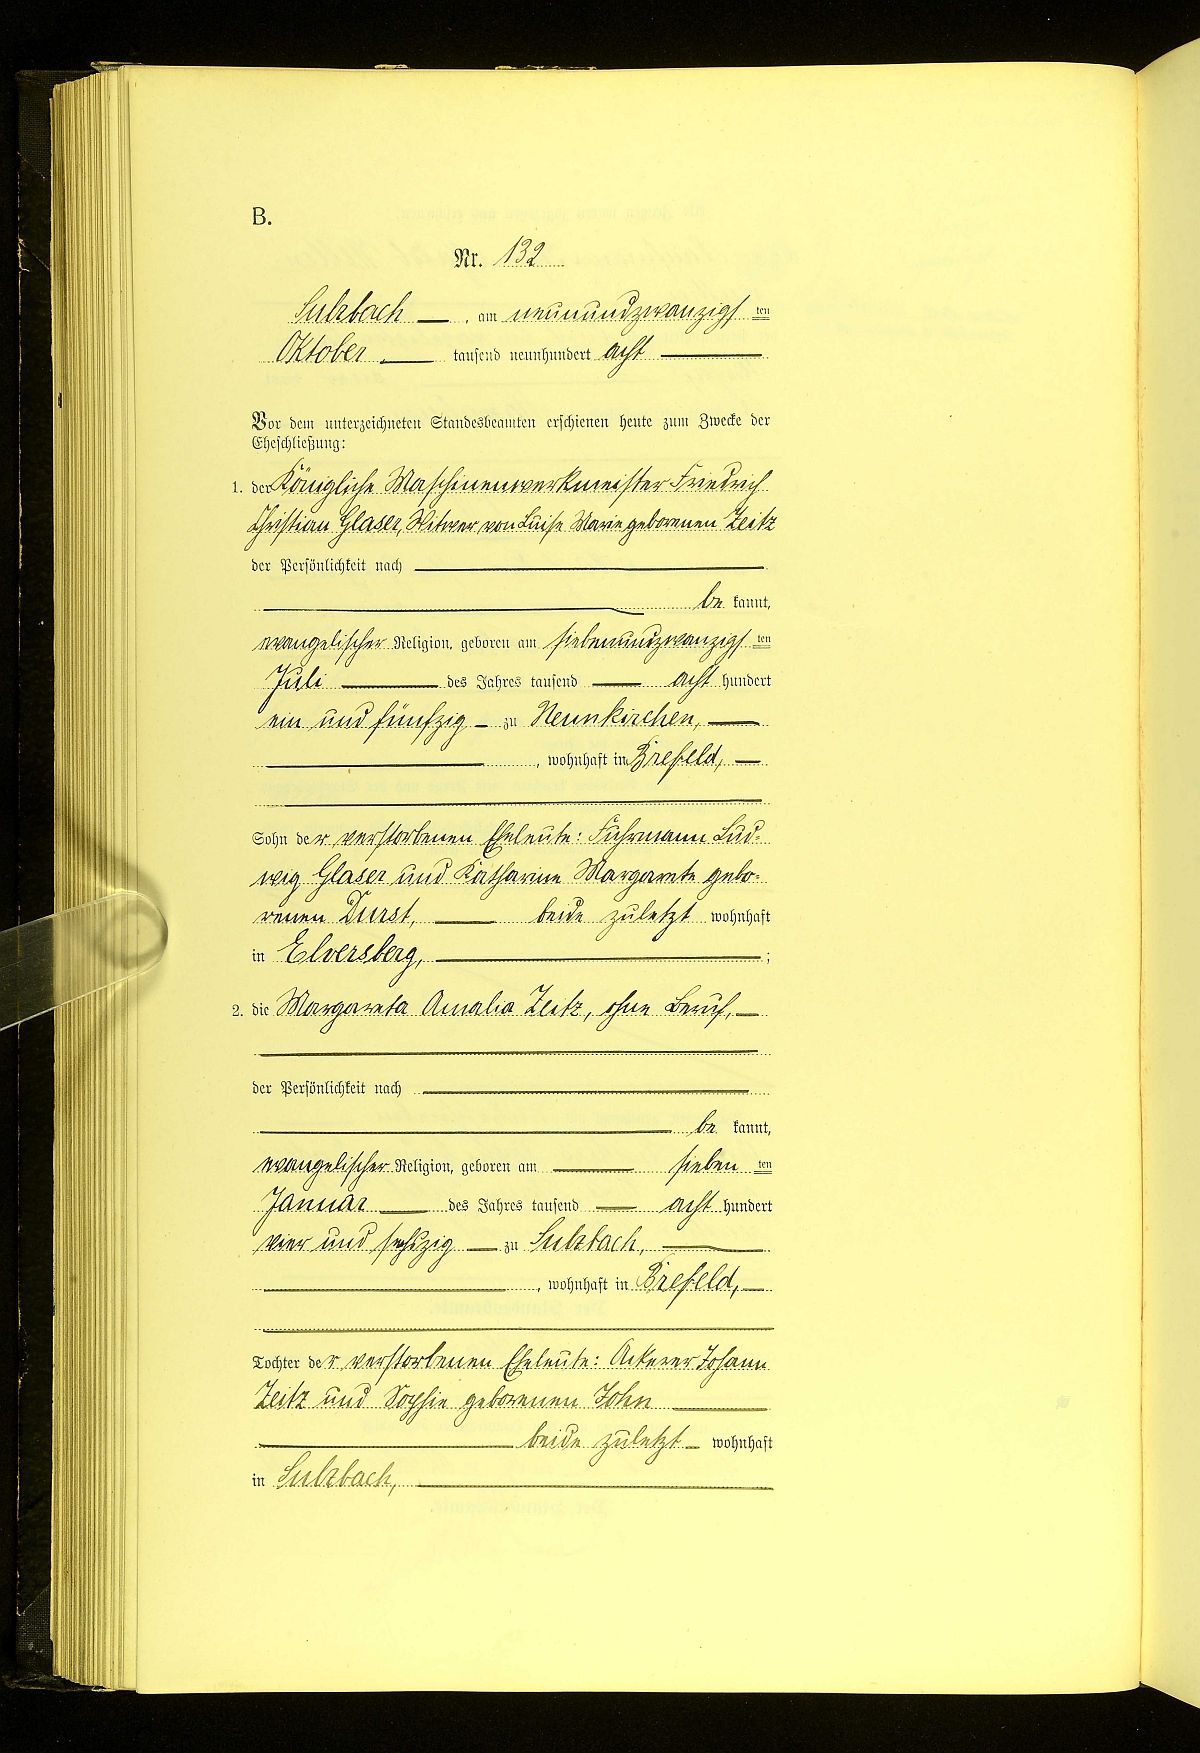 B.
Nr. 132
Sulzbach, am neunundzwanzigsten
Oktober tausend neunhundert acht
Vor dem unterzeichneten Standesbeamten erschienen heute zum Zwecke der
Eheschließung:
1. der Königliche Maschinenwerkmeister Friedrich
Christian Glaser, Witwer von Luise Marie geborenen Zeitz
der Persönlichkeit nach
be kannt,
evangelischer Religion, geboren am siebenundzwanzigsten
Juli des Jahres tausend acht hundert
ein und fünfzig zu Neunkirchen,
, wohnhaft in Brefeld,
Sohn der verstorbenen Eheleute: Fuhrmann Lud=
wig Glaser und Katharine Margarete gebo=
renen Durst, beide zuletzt wohnhaft
in Elversberg, ;
2. die Margareta Amalia Zeitz, ohne Beruf,
der Persönlichkeit nach
be kannt,
evangelischer Religion, geboren am siebenten
Januar des Jahres tausend acht hundert
vier und sechzig zu Sulzbach,
, wohnhaft in Brefeld,
Tochter der verstorbenen Eheleute: Ackerer Johann
Zeitz und Sophie geborenen John
beide zuletzt wohnhaft
in Sulzbach,